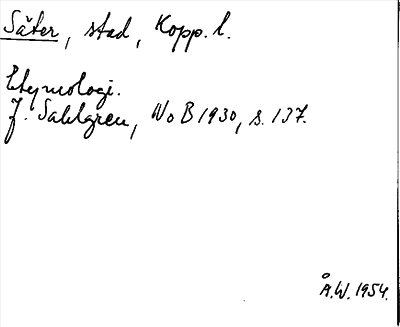 Säter, stad, Kopp. l.
Etymologi.
J. Sahlgren, NoB 1930, s. 137.
Å.W. 1954.